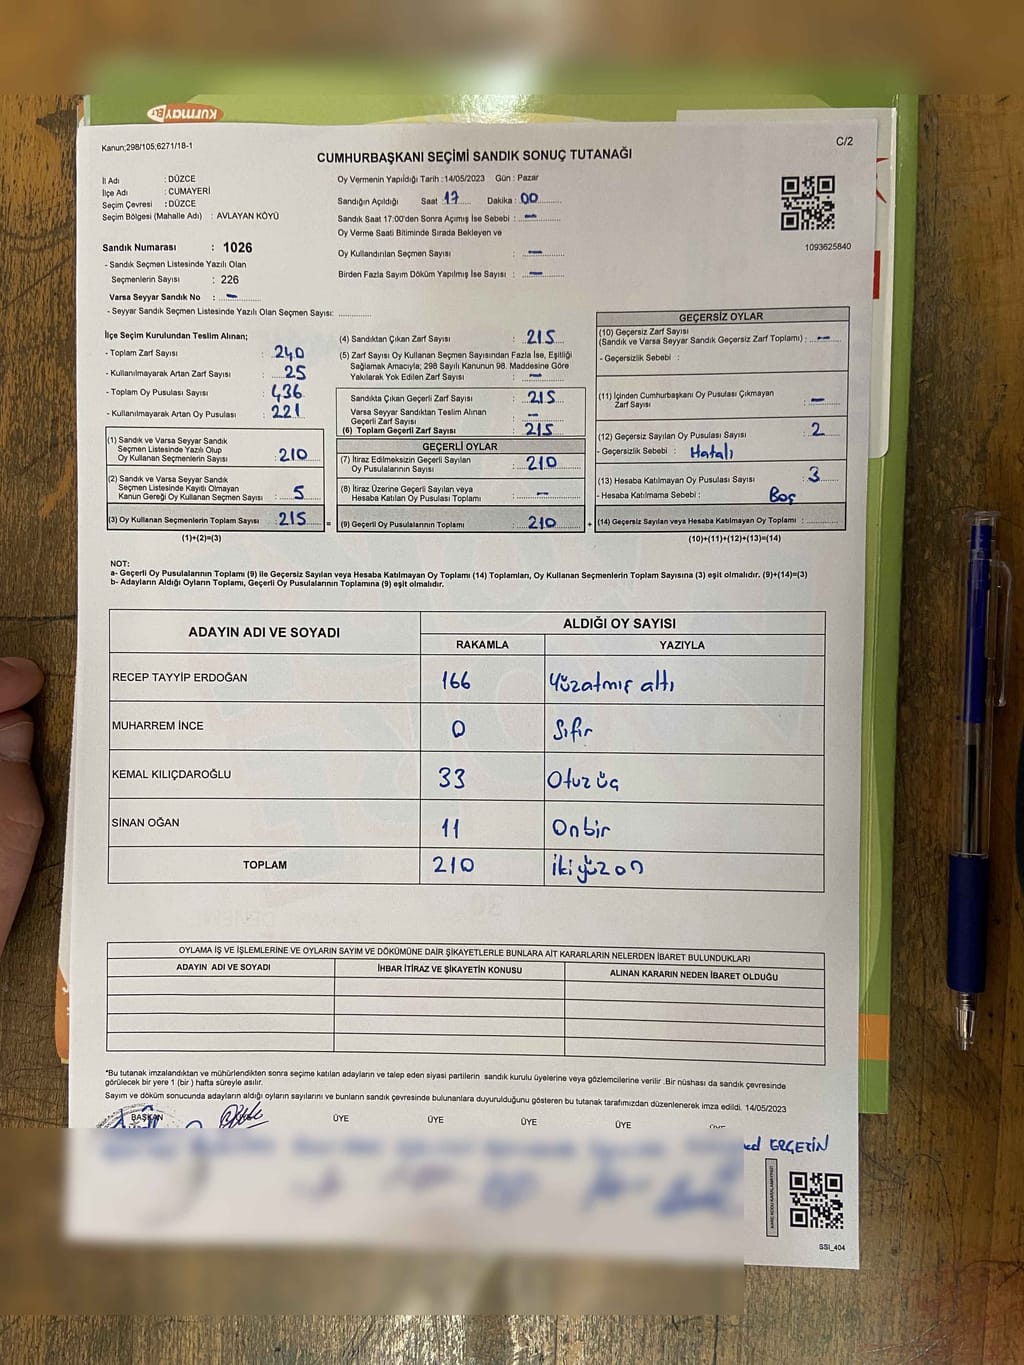 Kurmay
Kanun;298/105;6271/18-1
C/2
CUMHURBAŞKANI SEÇİMİ SANDIK SONUÇ TUTANAĞI
İl Adı : DÜZCE
İlçe Adı : CUMAYERİ
Seçim Çevresi : DÜZCE
Seçim Bölgesi (Mahalle Adı) : AVLAYAN KÖYÜ
Sandık Numarası : 1026
- Sandık Seçmen Listesinde Yazılı Olan
Seçmenlerin Sayısı : 226
Varsa Seyyar Sandık No : –
- Seyyar Sandık Seçmen Listesinde Yazılı Olan Seçmen Sayısı: ..............
Oy Vermenin Yapıldığı Tarih : 14/05/2023 Gün : Pazar
Sandığın Açıldığı Saat 17 Dakika : 00
Sandık Saat 17:00'den Sonra Açımış İse Sebebi : –
Oy Verme Saati Bitiminde Sırada Bekleyen ve
Oy Kullandırılan Seçmen Sayısı : –
Birden Fazla Sayım Döküm Yapılmış İse Sayısı : –
1093625840
İlçe Seçim Kurulundan Teslim Alınan;
- Toplam Zarf Sayısı : 240
- Kullanılmayarak Artan Zarf Sayısı : 25
- Toplam Oy Pusulası Sayısı : 436
- Kullanılmayarak Artan Oy Pusulası : 221
(1) Sandık ve Varsa Seyyar Sandık
Seçmen Listesinde Yazılı Olup
Oy Kullanan Seçmenlerin Sayısı : 210
(2) Sandık ve Varsa Seyyar Sandık
Seçmen Listesinde Kayıtlı Olmayan
Kanun Gereği Oy Kullanan Seçmen Sayısı : 5
(3) Oy Kullanan Seçmenlerin Toplam Sayısı : 215 =
(1)+(2)=(3)
(4) Sandıktan Çıkan Zarf Sayısı : 215
(5) Zarf Sayısı Oy Kullanan Seçmen Sayısından Fazla İse, Eşitliği
Sağlamak Amacıyla; 298 Sayılı Kanunun 98. Maddesine Göre
Yakılarak Yok Edilen Zarf Sayısı : –
Sandıkta Çıkan Geçerli Zarf Sayısı : 215
Varsa Seyyar Sandıktan Teslim Alınan
Geçerli Zarf Sayısı : –
(6) Toplam Geçerli Zarf Sayısı : 215
GEÇERLİ OYLAR
(7) İtiraz Edilmeksizin Geçerli Sayılan
Oy Pusulalarının Sayısı : 210
(8) İtiraz Üzerine Geçerli Sayılan veya
Hesaba Katılan Oy Pusulası Toplamı : –
(9) Geçerli Oy Pusulalarının Toplamı : 210 +
GEÇERSİZ OYLAR
(10) Geçersiz Zarf Sayısı
(Sandık ve Varsa Seyyar Sandık Geçersiz Zarf Toplamı) : –
- Geçersizlik Sebebi :
(11) İçinden Cumhurbaşkanı Oy Pusulası Çıkmayan
Zarf Sayısı : –
(12) Geçersiz Sayılan Oy Pusulası Sayısı : 2
- Geçersizlik Sebebi : Hatalı
(13) Hesaba Katılmayan Oy Pusulası Sayısı : 3
- Hesaba Katılmama Sebebi : Boş
(14) Geçersiz Sayılan veya Hesaba Katılmayan Oy Toplamı : ..........
(10)+(11)+(12)+(13)=(14)
NOT:
a- Geçerli Oy Pusulalarının Toplamı (9) ile Geçersiz Sayılan veya Hesaba Katılmayan Oy Toplamı (14) Toplamları, Oy Kullanan Seçmenlerin Toplam Sayısına (3) eşit olmalıdır. (9)+(14)=(3)
b- Adayların Aldığı Oyların Toplamı, Geçerli Oy Pusulalarının Toplamına (9) eşit olmalıdır.
ADAYIN ADI VE SOYADI ALDIĞI OY SAYISI
RAKAMLA YAZIYLA
RECEP TAYYİP ERDOĞAN 166 Yüzatmış altı
MUHARREM İNCE 0 Sıfır
KEMAL KILIÇDAROĞLU 33 Otuz üç
SİNAN OĞAN 11 Onbir
TOPLAM 210 İkiyüzon
OYLAMA İŞ VE İŞLEMLERİNE VE OYLARIN SAYIM VE DÖKÜMÜNE DAİR ŞİKAYETLERLE BUNLARA AİT KARARLARIN NELERDEN İBARET BULUNDUKLARI
ADAYIN ADI VE SOYADI İHBAR İTİRAZ VE ŞİKAYETİN KONUSU ALINAN KARARIN NEDEN İBARET OLDUĞU
*Bu tutanak imzalandıktan ve mühürlendikten sonra seçime katılan adayların ve talep eden siyasi partilerin sandık kurulu üyelerine veya gözlemcilerine verilir .Bir nüshası da sandık çevresinde
görülecek bir yere 1 (bir ) hafta süreyle asılır.
Sayım ve döküm sonucunda adayların aldığı oyların sayılarını ve bunların sandık çevresinde bulunanlara duyurulduğunu gösteren bu tutanak tarafımızdan düzenlenerek imza edildi. 14/05/2023
BAŞKAN ÜYE ÜYE ÜYE ÜYE
ERGEZİN
SSI_404